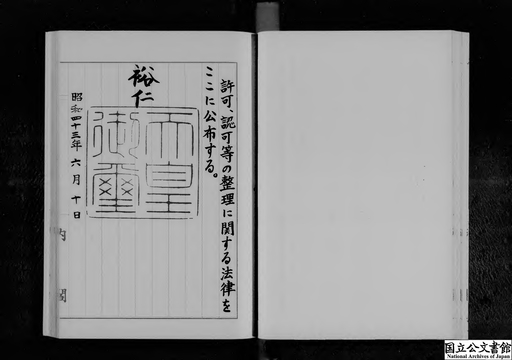 許可、認可等の整理に関する法律を
ここに公布する。
裕仁
天皇
御璽
昭和四十三年六月十日
内閣
国立公文書館
National Archives of Japan